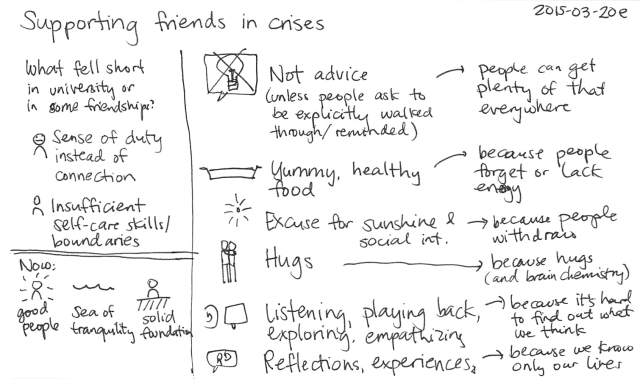 Supporting friends in crises
2015-03-20e
What fell short
in university or
in some friendships?
Sense of duty
instead of
connection
Insufficient
self-care skills/
boundaries
Now:
good
people
sea of
tranquility
solid
foundation
Not advice
(unless people ask to
be explicitly walked
through/reminded)
people can get
plenty of that
everywhere
Yummy, healthy
food
because people
forget or lack
energy
Excuse for sunshine &
social int.
because people
withdraw
Hugs
because hugs
(and brain chemistry)
Listening, playing back,
exploring, empathizing
because it's hard
to find out what
we think
Reflections, experiences,
because we know
only our lives